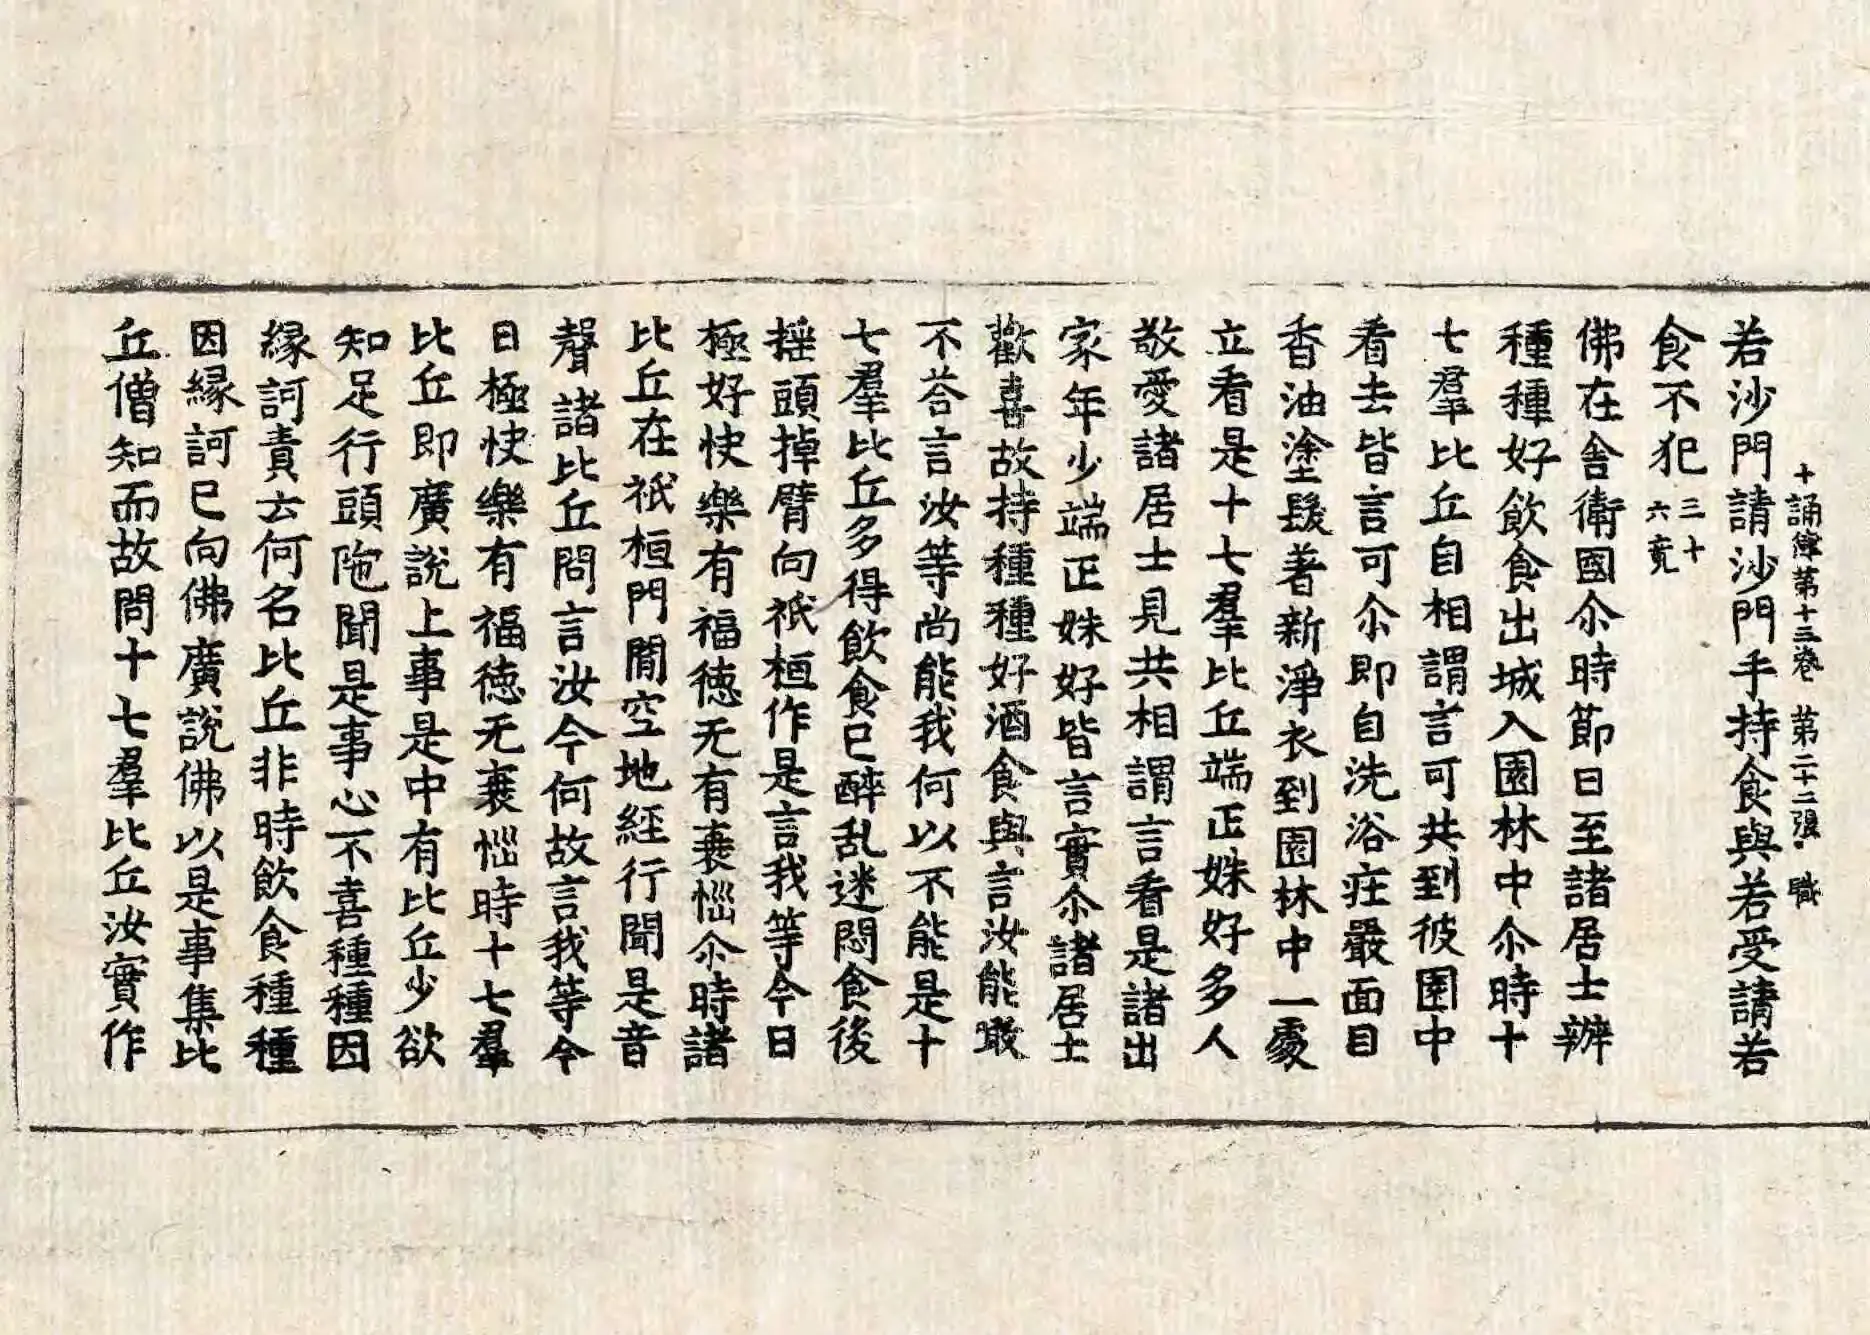 十誦律第十三卷 第二十二張 職
若沙門請沙門手持食與若受請若
食不犯三十六竟
佛在舍衛國尒時節日至諸居士辦
種種好飲食出城入園林中尒時十
七羣比丘自相謂言可共到彼園中
看去皆言可尒即自洗浴庄嚴面目
香油塗髮著新淨衣到園林中一處
立看是十七羣比丘端正姝好多人
敬愛諸居士見共相謂言看是諸出
家年少端正姝好皆言實尒諸居士
歡喜故持種種好酒食與言汝能噉
不荅言汝等尚能我何以不能是十
七羣比丘多得飲食已醉乱迷悶食後
揺頭掉臂向祇桓作是言我等今日
極好快樂有福徳无有衰惱尒時諸
比丘在祇桓門閒空地經行聞是音
聲諸比丘問言汝今何故言我等今
日極快樂有福徳无衰惱時十七羣
比丘即廣說上事是中有比丘少欲
知足行頭陁聞是事心不喜種種因
縁訶責云何名比丘非時飲食種種
因縁訶已向佛廣說佛以是事集比
丘僧知而故問十七羣比丘汝實作